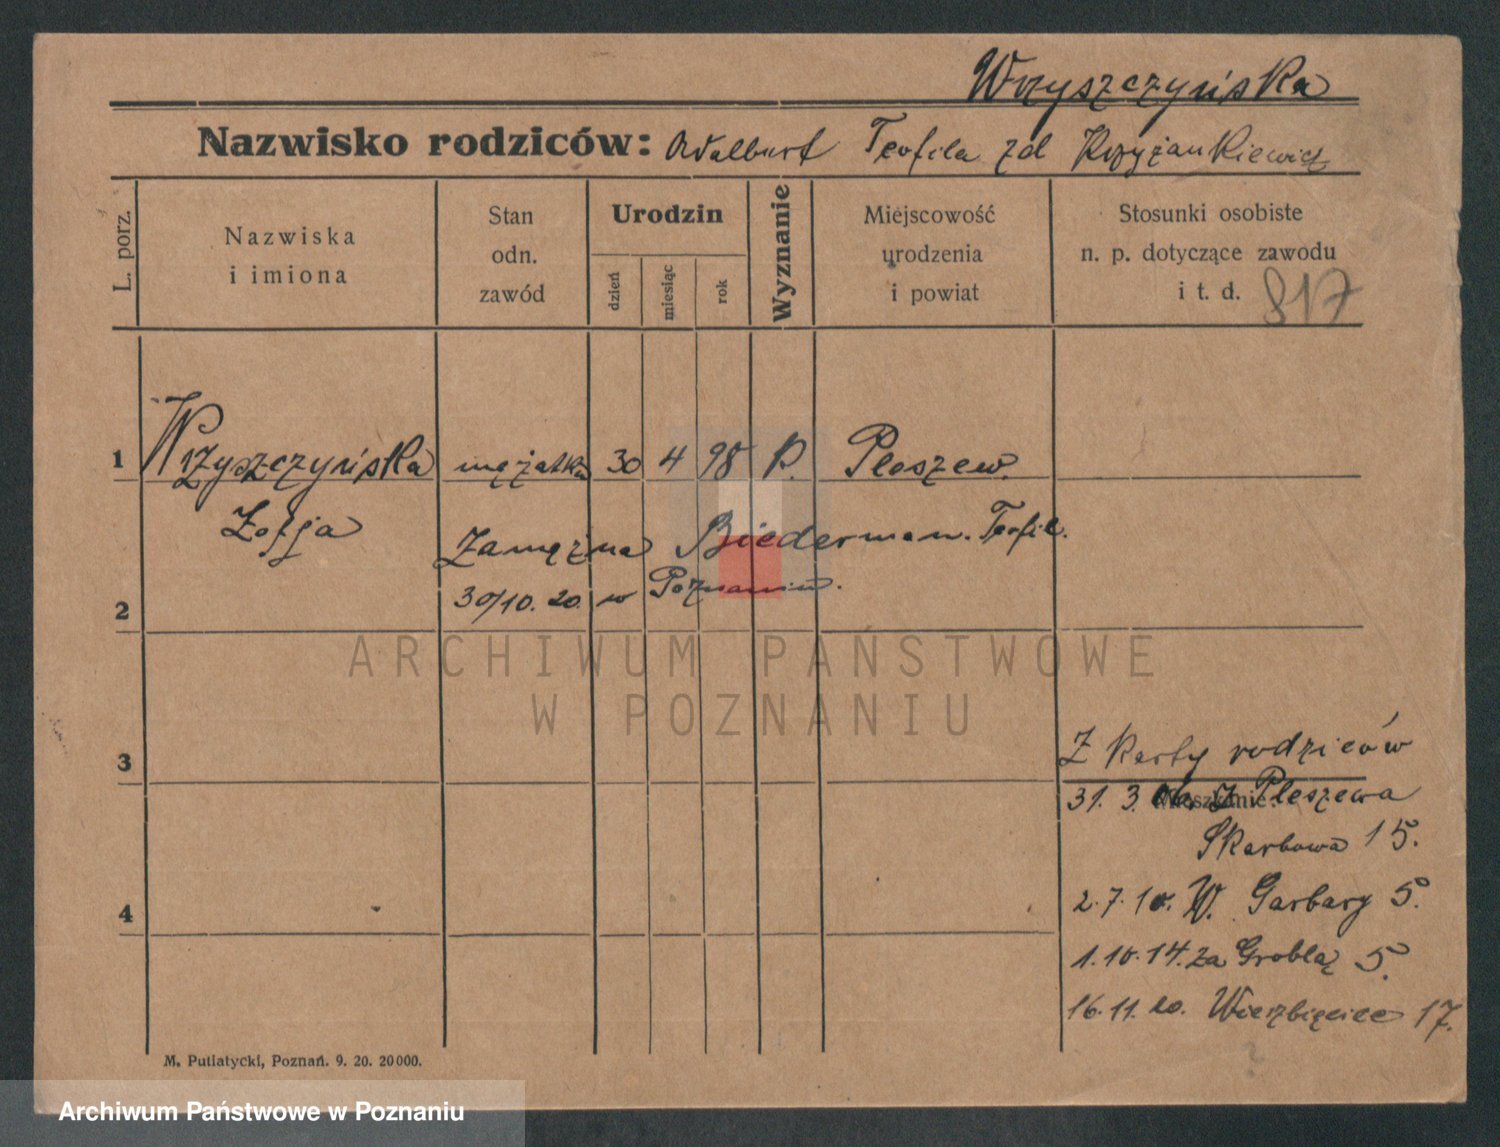 Wrzyszczyńska
Nazwisko rodziców: Adalbert Teofila zd Krzyżankiewicz
L. porz.
Nazwiska
i imiona
Stan
odn.
zawód
Urodzin
dzień
miesiąc
rok
Wyznanie
Miejscowość
urodzenia
i powiat
Stosunki osobiste
n. p. dotyczące zawodu
i t. d. 817
1 Wrzyszczyńska mężatka 30 4 98 k. Pleszew.
Zofja
Zamężna Biederman. Teofil.
30/10. 20. w Poznaniu.
2
ARCHIWUM PAŃSTWOWE
W POZNANIU
3
Z karty rodziców
Mieszkanie:
31. 3. z Pleszewa
Skarbowa 15.
4
2.7.10. W. Garbary 5.
1.10.14. Za Groblą 5.
16.11.20. Wierzbięcice 17.
M. Putiatycki, Poznań. 9. 20. 20000.
Archiwum Państwowe w Poznaniu